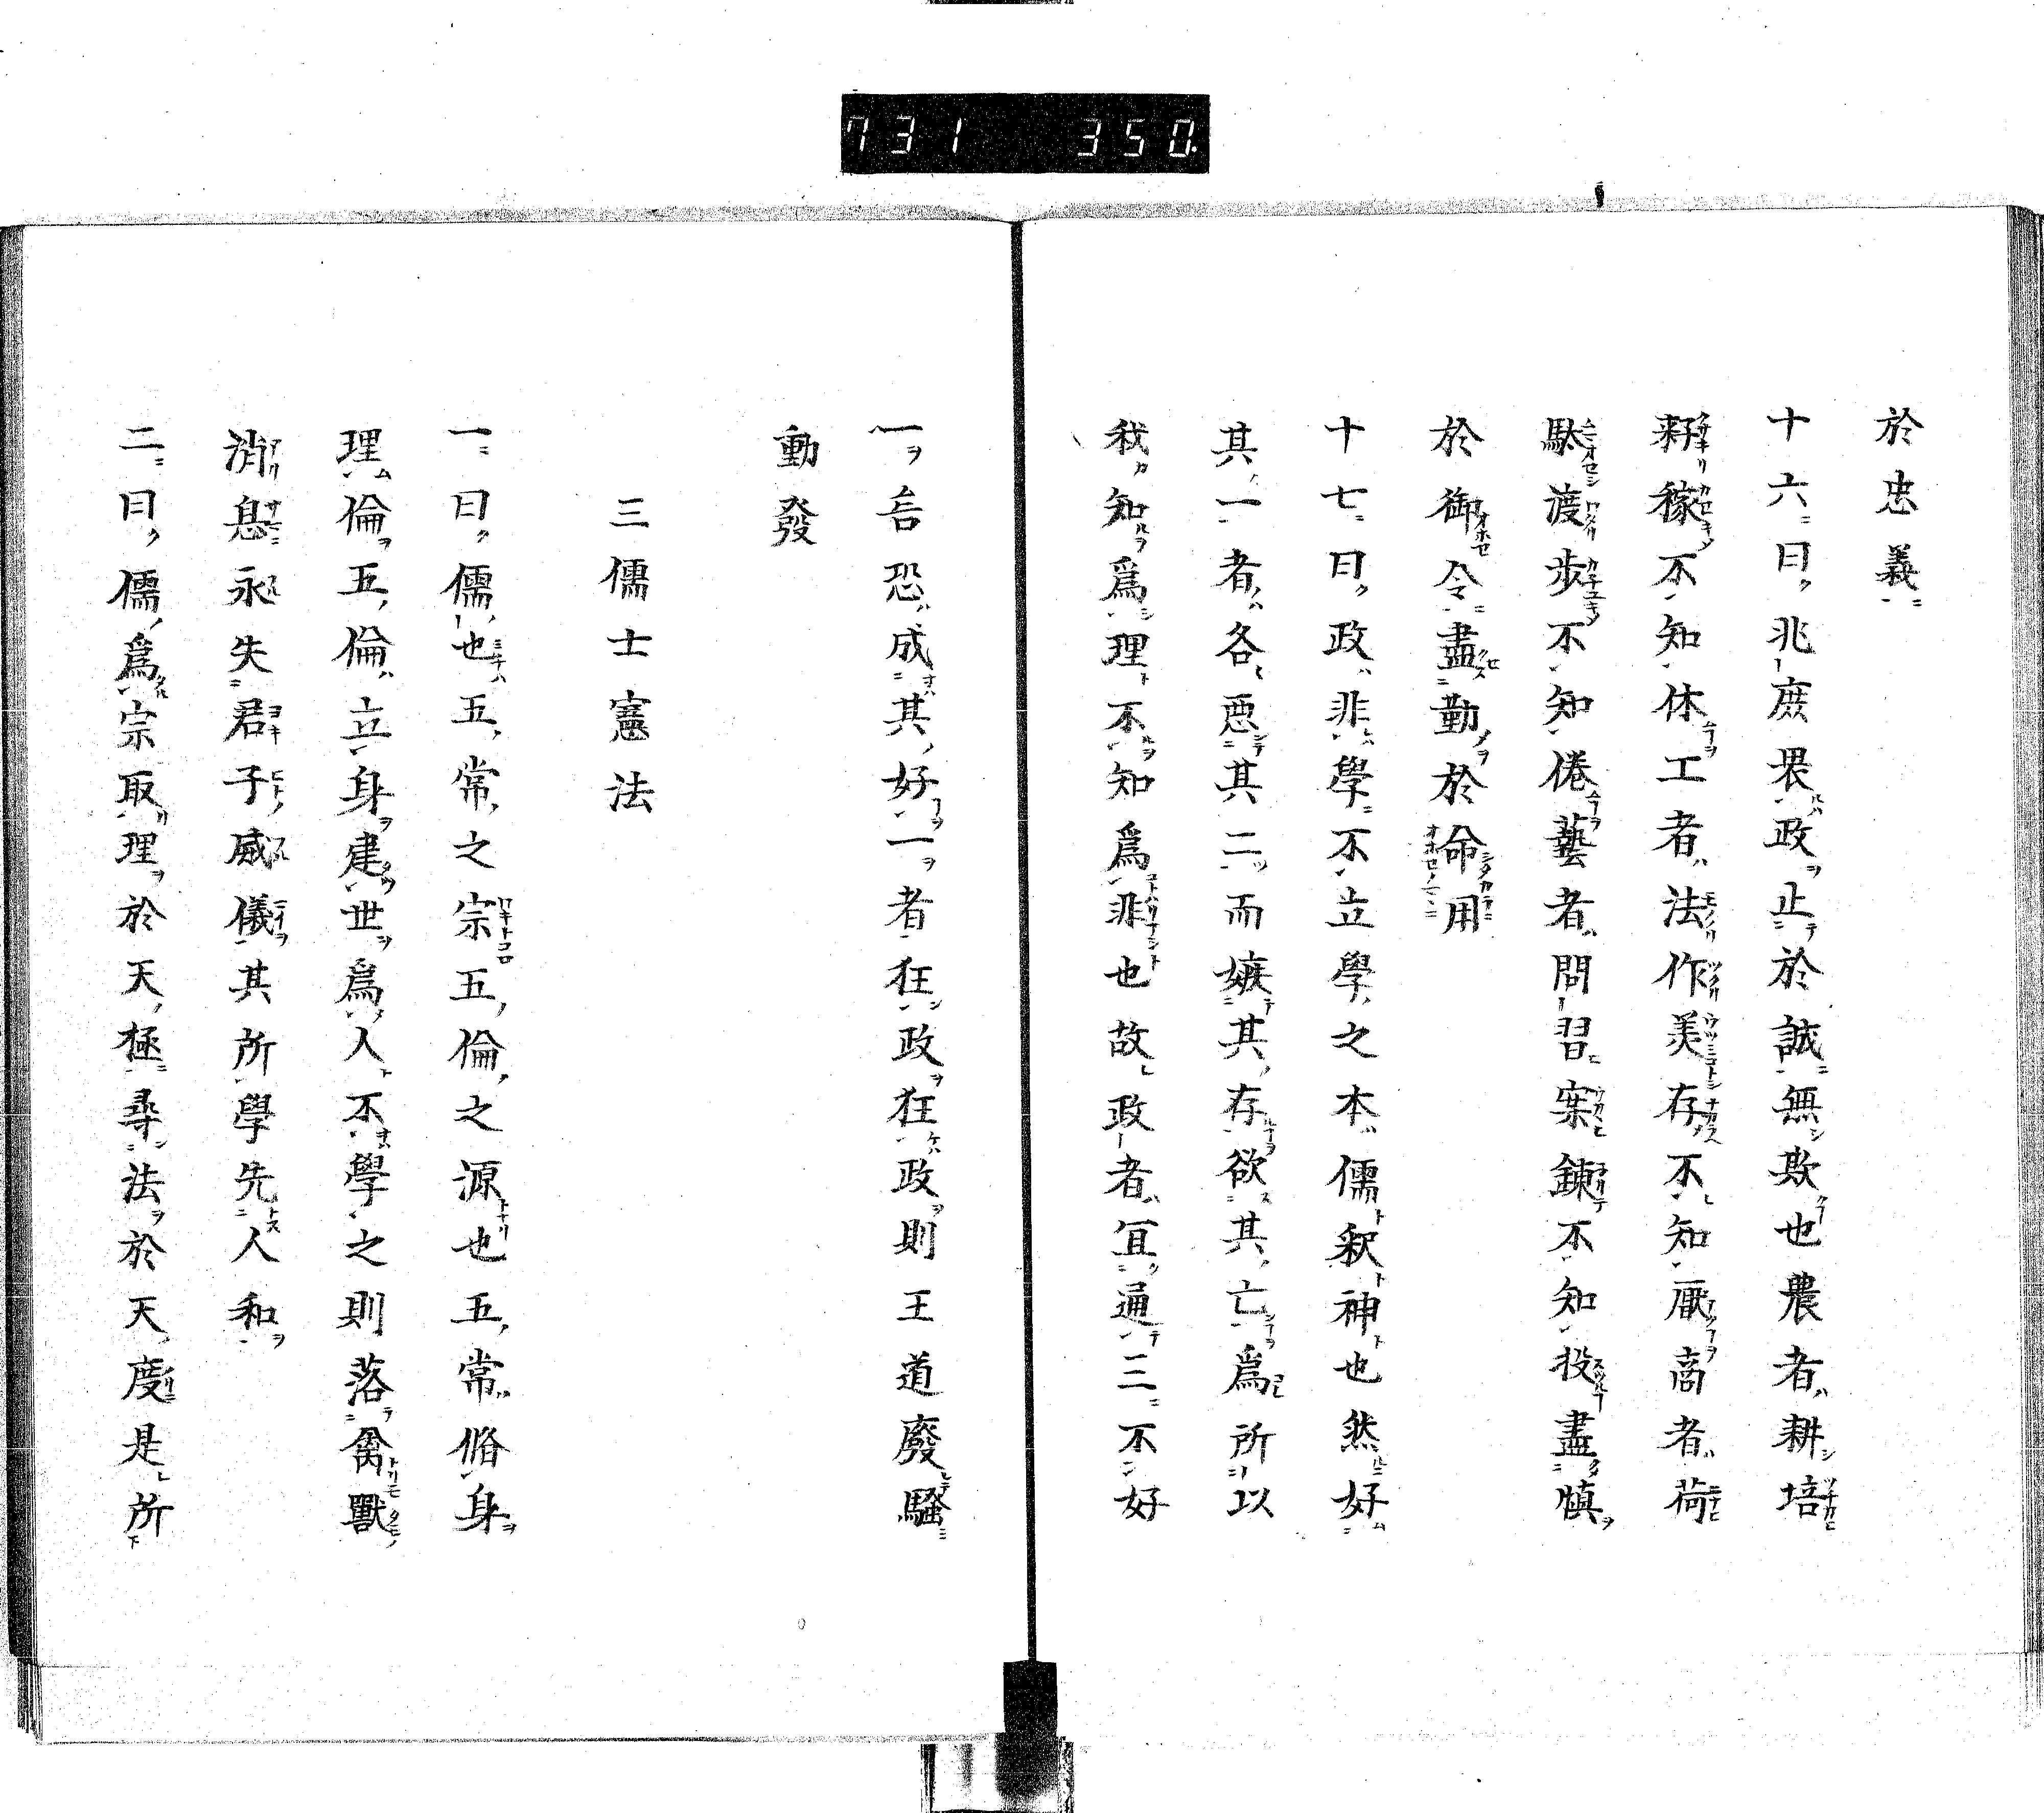 731 350.
於忠義
十六曰兆庶畏政止於誠無欺也農者耕培
耔稼不知休工者法作美存不知厭商者荷
馱渡歩不知倦藝者問習案錬不知投盡慎
於御令盡勤於命用
十七曰政非學不立學之本儒釈神也然好
其一者各惡其二而嫉其存欲其亡爲所以
我知爲理不知爲非也故政者宜通三不好
一言恐成其好一者狂政狂政則王道廢騷
動發
三儒士憲法
一曰儒也五常之宗五倫之源也五常脩身
理倫五倫立身建世爲人不學之則落禽獸
消息永失君子威儀其所學先人和
二曰儒爲宗取理於天極尋法於天度是所